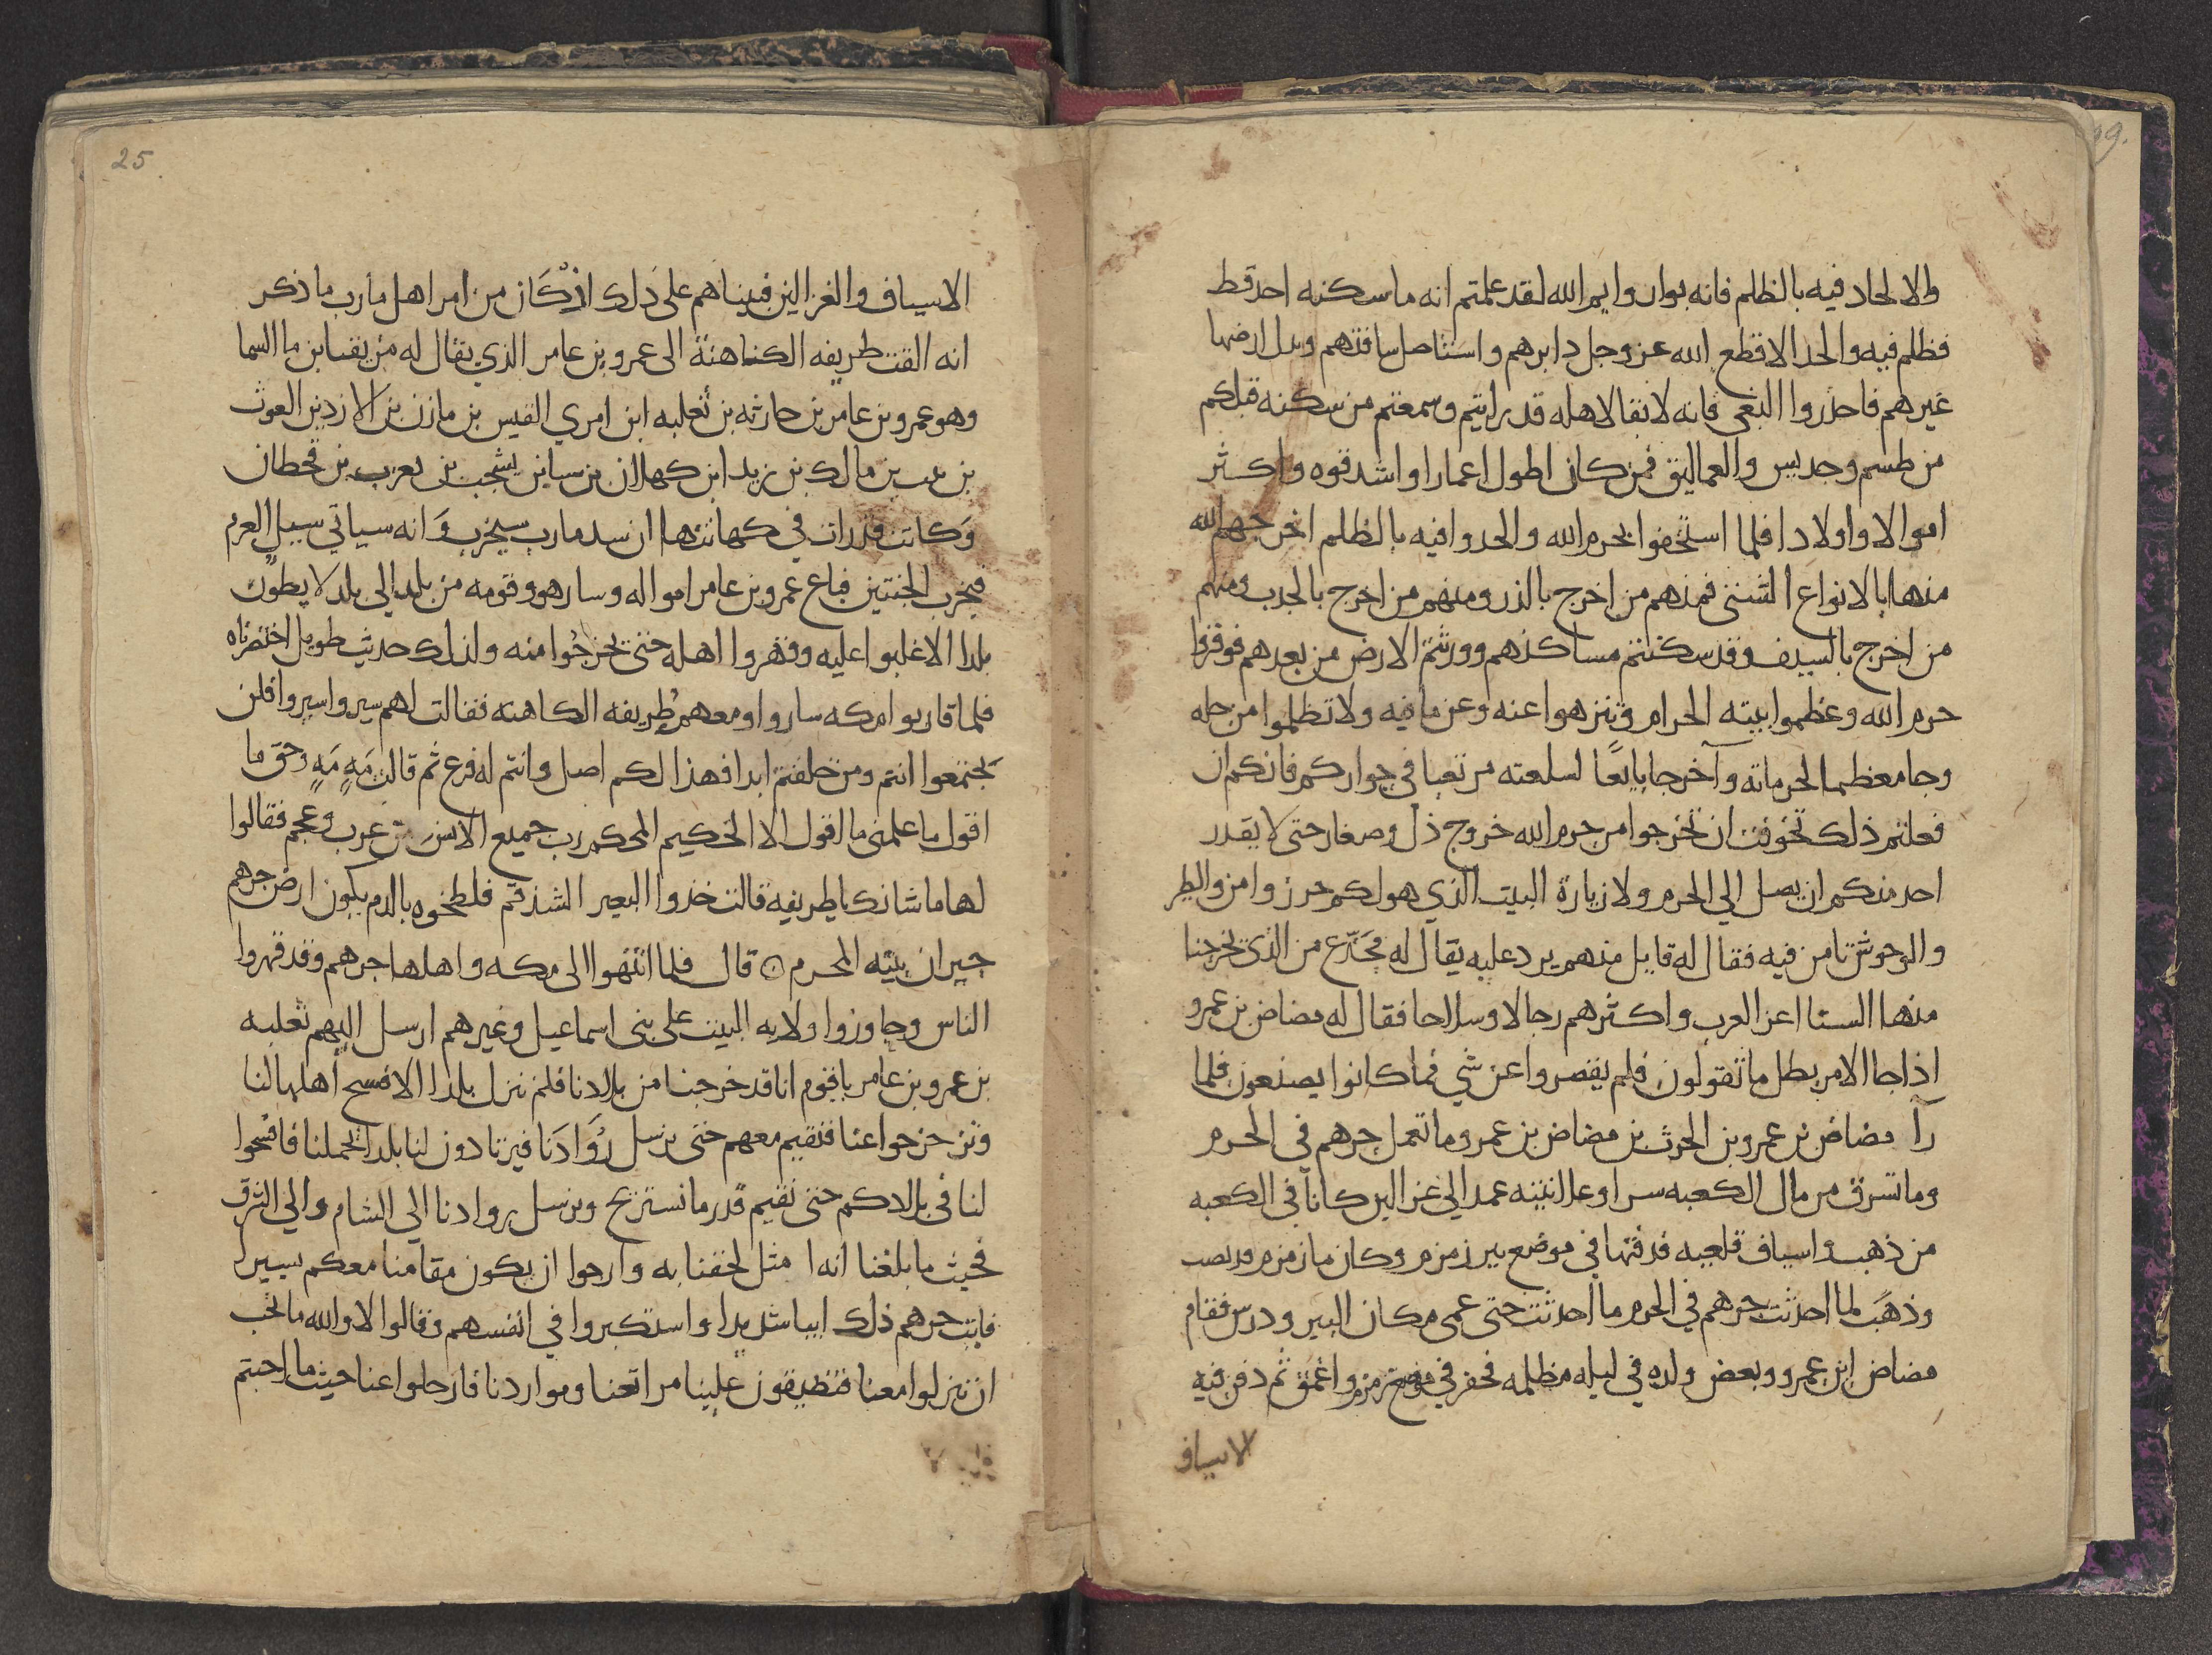 والالحاد فيه بالظلم فانه بوار وايم الله لقد علمتم انه ما سكنه احد قط
فظلم فيه والحد الا قطع الله عز وجل دابرهم واستاصل سافتهم وبدل ارضها
غيرهم فاحذروا البغي فانه لا بقا لاهله قد رايتم وسمعتم من سكنه قبلكم
من طسم وجديس والعماليق فمن كان اطول اعمارا واشد قوه واكثر
اموالا واولادا فلما استخفوا بحرم الله والحدوا فيه بالظلم اخرجهم الله
منها بالانواع الشتى فمنهم من اخرج بالذر ومنهم من اخرج بالجدب ومنهم
من اخرج بالسيف وقد سكنتم مساكنهم وورثتم الارض من بعدهم فوقروا
حرم الله وعظموا بيته الحرام وتنزهوا عنه وعن ما فيه ولا تظلموا من حله
وجا معظما لحرماته وآخر جا بايعًا لسلعته مرتعبا في جواركم فانكم ان
فعلتم ذلك تخوفت ان تخرجوا من حرم الله خروج ذل وصغار حتى لا يقدر
احد منكم ان يصل الى الحرم ولا زيارة البيت الذي هو لكم حرز وامن والطير
والوحوش تامن فيه فقال له قايل منهم يرد عليه يقال له مجَدّع من الذي يخرجنا
منها السنا اعز العرب واكثرهم رجالا وسلاحا فقال له مضاض بن عمرو
اذا جا الامر بطل ما تقولون فلم يقصروا عن شي فما كانوا يصنعون فلما
رآ مضاض بن عمرو بن الحرث بن مضاض بن عمرو ما تعمل جرهم في الحرم
وما تسرق من مال الكعبه سرا وعلانيته عمد الى غزالين كانا في الكعبه
من ذهب واسياف قلعيه فدفنها في موضع بير زمزم وكان ما زمزم قد نضب
وذهَب لما احدثت جرهم في الحرم ما احدثت حتى عمى مكان البير ودرس فقام
مضاض ابن عمرو وبعض ولده في ليله مظلمه فحفر في موضع زمزم واعمق ثم دفن فيه
الاسياف
25
الاسياف والغزالين فبيناهم على ذَلك اذْ كَان من امر اهل مارب ما ذكر
انه القت طريفه الكاهنة الى عمرو بن عامر الذي يقال له مزيقيا بن ما السما
وهو عمرو بن عامر بن حارثه بن ثعلبه ابن امري القيس بن مازن بن الازد بن الغوث
بن نبت بن مالك بن زيد ابن كهلان بن سبا بن يشجب بن يعرب بن قحطان
وَكانت قد رات في كهانتها ان سد مارب سيخرب وَانه سياتي سيل العرم
فيخرب الجنتين فباع عمرو بن عامر امواله وسار هو وقومه من بلد الى بلد لا يطون
بلدا الا غلبوا عليه وقهروا اهله حتى يخرجُوا منه ولذلك حديث طويل اختصرناه
فلما قاربوا مكه ساروا ومعهم طُريفه الكاهنه فقالت لهم سيروا سيروا فلن
تجتمعوا انتم ومن خلفتم ابدا فهذا لكم اصل وانتم له فرع ثم قالت مَهٍ مَهٍ وحق ما
اقول ما علمنى ما اقول الا الحكيم المحكم رب جميع الانس من عرب وعجم فقالوا
لها ما شانك يا طريفه قالت خذوا البعير الشذقم فلطخوه بالدم يكون ارض جرهم
جيران بيته المحرم ۞ قال فلما انتهوا الى مكه واهلها جرهم وقد قهروا
الناس وجاوزوا ولايه البيت على بنى اسماعيل وغيرهم ارسل اليهم ثعلبه
بن عمرو بن عامر يا قوم انا قد خرجنا من بلادنا فلم ننزل بلدا الا افسح اهلها لنا
وتزحزحوا عنا فنقيم معهم حتى نرسل رُوَادَنا فيرتادون لنا بلدا تحملنا فافسَحوا
لنا في بلادكم حتى نقيم قدر ما نستريح ونرسل روادنا الى الشام والى الشرق
فحيث ما بلغنا انه امثل لحقنا به وارجوا ان يكون مقامنا معكم يسيرا
فابت جرهم ذلك ابيا شديدا واستكبروا في انفسهم وقالوا لا والله ما نحب
ان تنزلوا معنا فتضيقون علينا مراتعنا ومواردنا فارحلوا عنا حيث ما احببتم